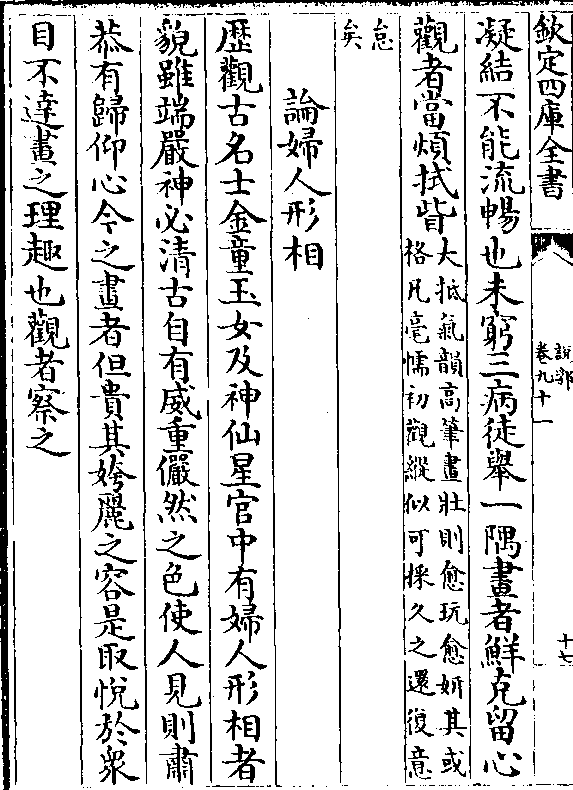 欽定四庫全書
說郛
卷九十一
十七
凝結不能流暢也未窮三病徒舉一隅畫者鮮克留心
觀者當煩拭眥
大抵氣韻高筆畫壯則愈玩愈妍其或
格凡毫懦初觀縱似可採久之還復意
怠
矣
論婦人形相
歷觀古名士金童玉女及神仙星官中有婦人形相者
貌雖端嚴神必清古自有威重儼然之色使人見則肅
恭有歸仰心今之畫者但貴其姱麗之容是取悅於衆
目不達畫之理趣也觀者察之